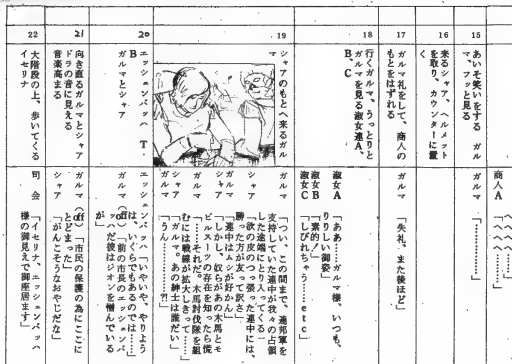 15
あいそ笑いをする ガル
マ、フッと見る
商人A
「へへへへ……」
ガルマ
「…………」
16
来るシャア、ヘルメット
を取り、カウンターに置
く
17
ガルマ礼をして、商人の
もとをはずれる
ガルマ
「失礼、また後ほど」
18
行くガルマ、うっとりと
ガルマを見る淑女連A、
B、C
淑女A
「ああ……ガルマ様、いつも、
りりしい御姿」
淑女B
「素的!」
淑女C
「しびれちゃう……etc」
19
シャアのもとへ来るガル
マ
ガルマ
「つい、この間まで、連邦軍を
支持していた連中が我々の占領
した途端にとり入ってくる」
シャア
「欲の皮のつっ張った連中には、
勝った方が友って訳さ」
ガルマ
「連中はムシが好かん」
シャア
「しかし、奴らがあの木馬とモ
ビルスーツの存在を知ったら慌
ガルマ
「……それだ。木馬討伐隊を組
むには戦線が拡大しきって……」
シャア
「ガルマ。あの紳士は誰だい」
ガルマ
「うん………?!」
20
エッシェンバッハ T
B
ガルマとシャア
エッシェンバッハ
「いやいや、やりよう
は、いくらでもあるのでは……」
ガルマ(off)
「前の市長のエッシェンバ
ッハだ彼はジオンを憎んでいる
が」
21
向き直るガルマとシャア
ドラの音に見える
音楽高まる
ガルマ(off)
「市民の保護の為にここに
とどまった」
シャア
「がんこそうなおやじだな」
22
大階段の上、歩いてくる
イセリナ
司会
「イセリナ、エッシェンバッハ
様の御見えで御座居ます」